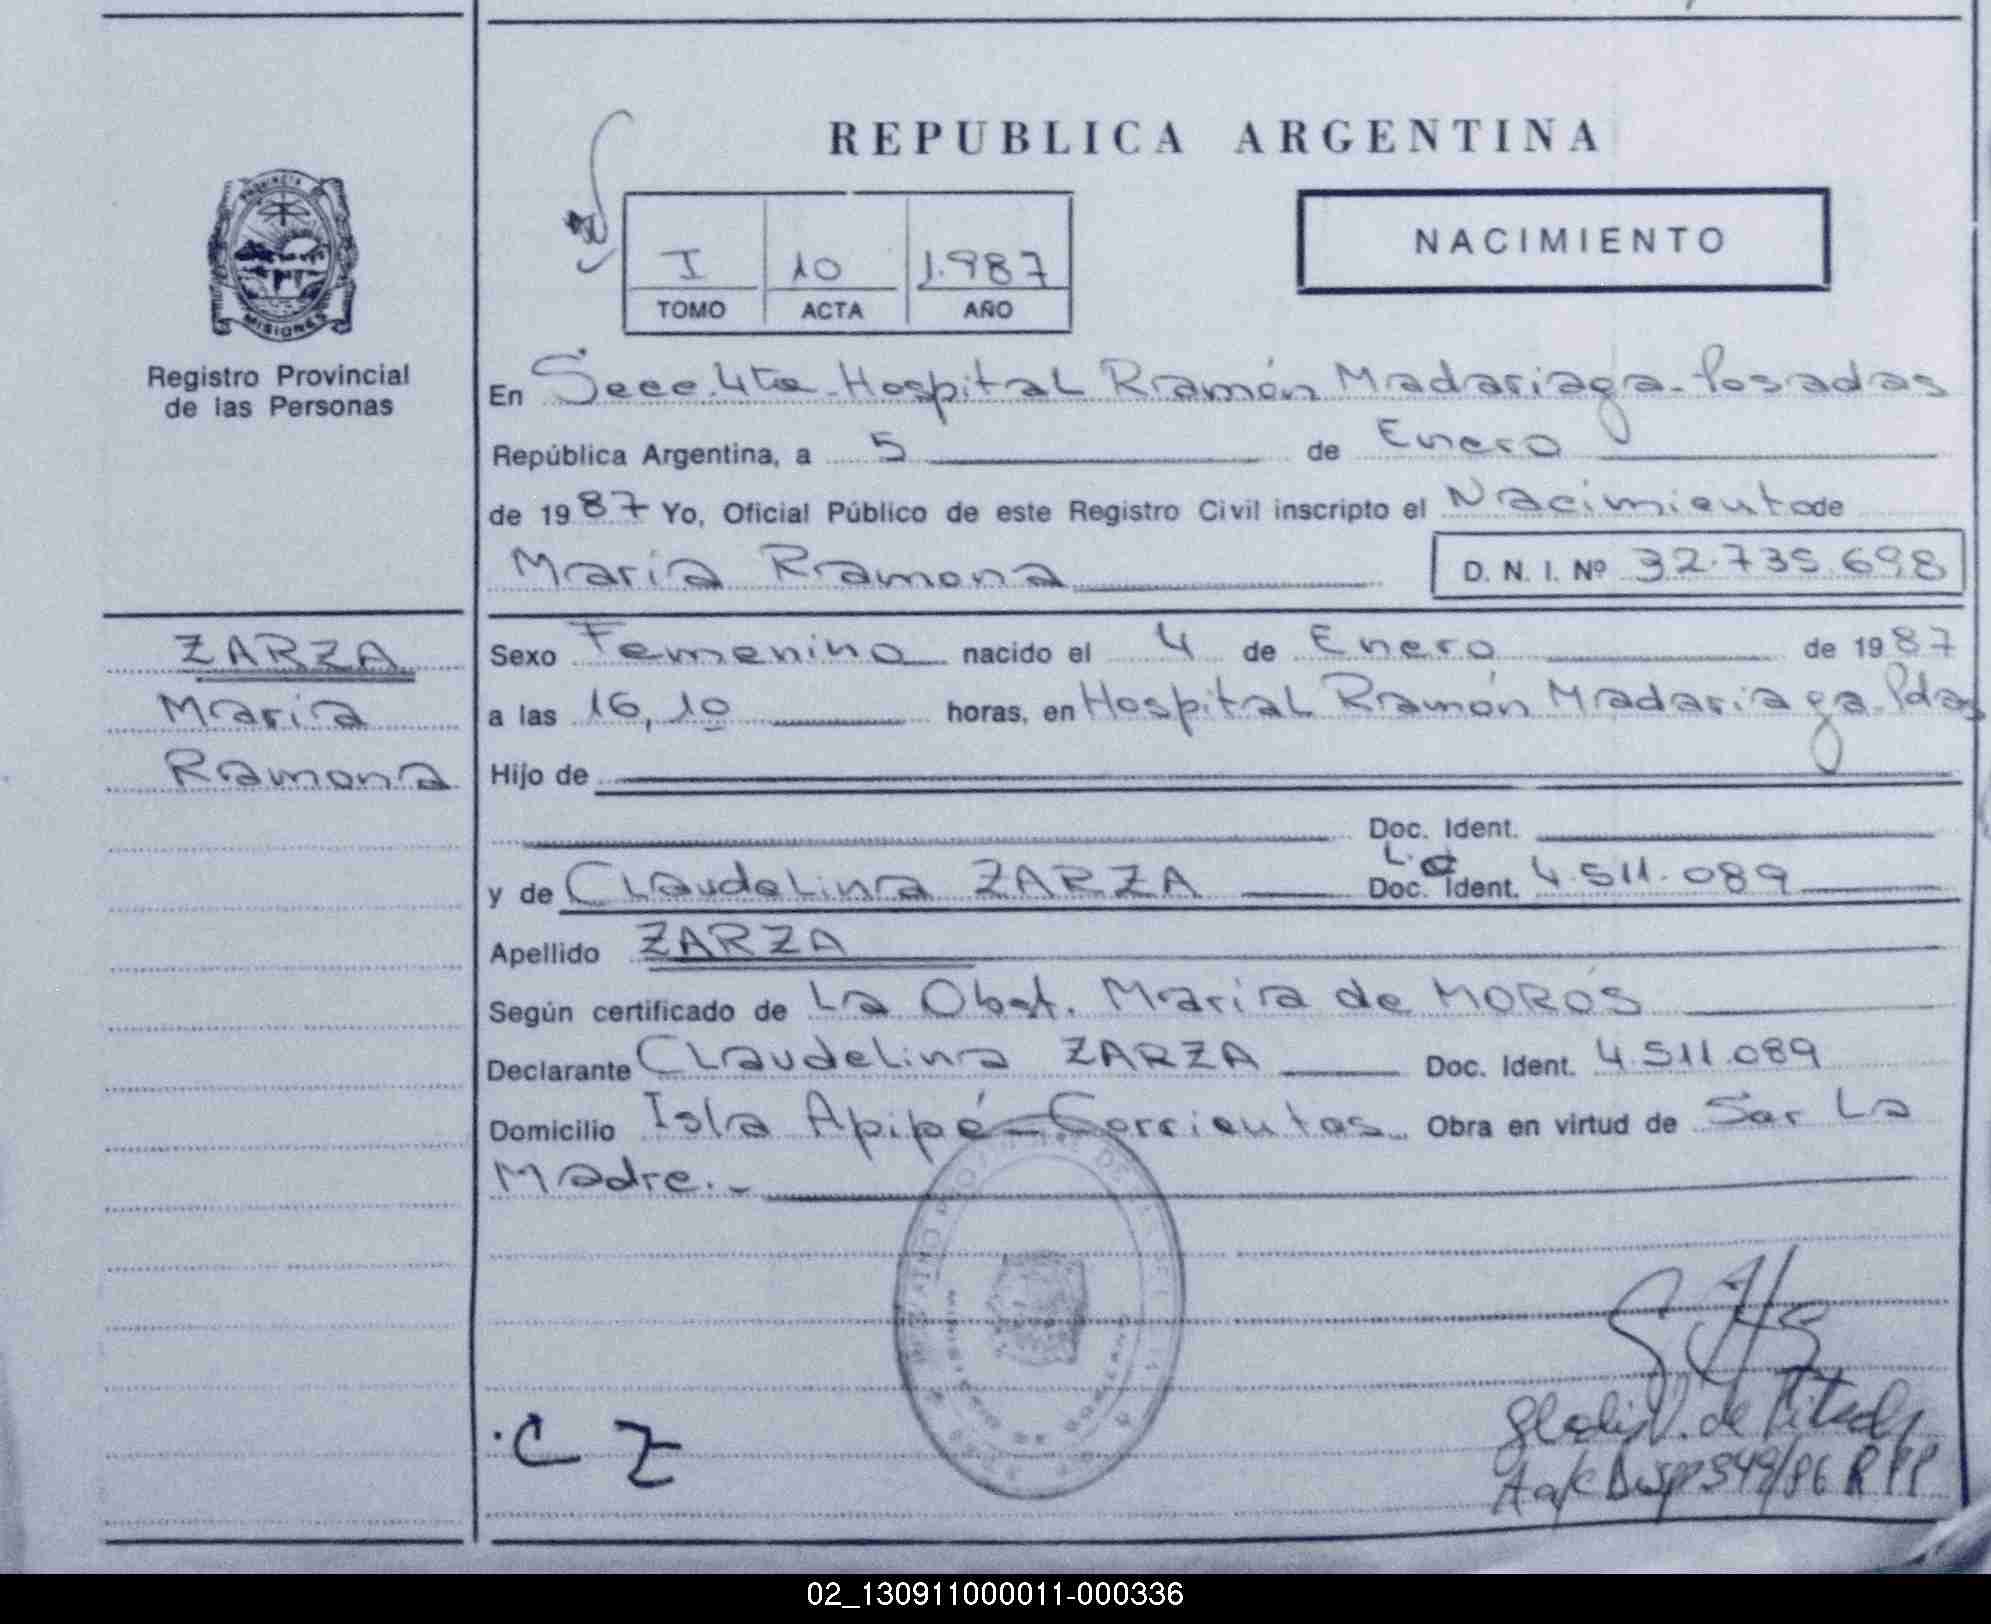 REPUBLICA ARGENTINA
NACIMIENTO
I 10 1.987
TOMO ACTA AÑO
PROVINCIA
MISIONES
Registro Provincial
de las Personas
En Secc. 4ta - Hospital Ramón Madariaga - Posadas
República Argentina, a 5 de Enero
de 1987 Yo, Oficial Público de este Registro Civil inscripto el Nacimiento de
Maria Ramona D. N. I. Nº 32.735.698
ZARZA
Maria
Ramona
Sexo Femenino nacido el 4 de Enero de 1987
a las 16,10 horas, en Hospital Ramón Madariaga - Pdas
Hijo de
Doc. Ident.
L. C
y de Claudelina ZARZA Doc. Ident. 4.511.089
Apellido ZARZA
Según certificado de La Obst. Maria de MOROS
Declarante Claudelina ZARZA Doc. Ident. 4.511.089
Domicilio Isla Apipé - Corrientes. Obra en virtud de Ser La
Madre. -
MISIONES
C Z
de
349/86 RPP
02_130911000011-000336